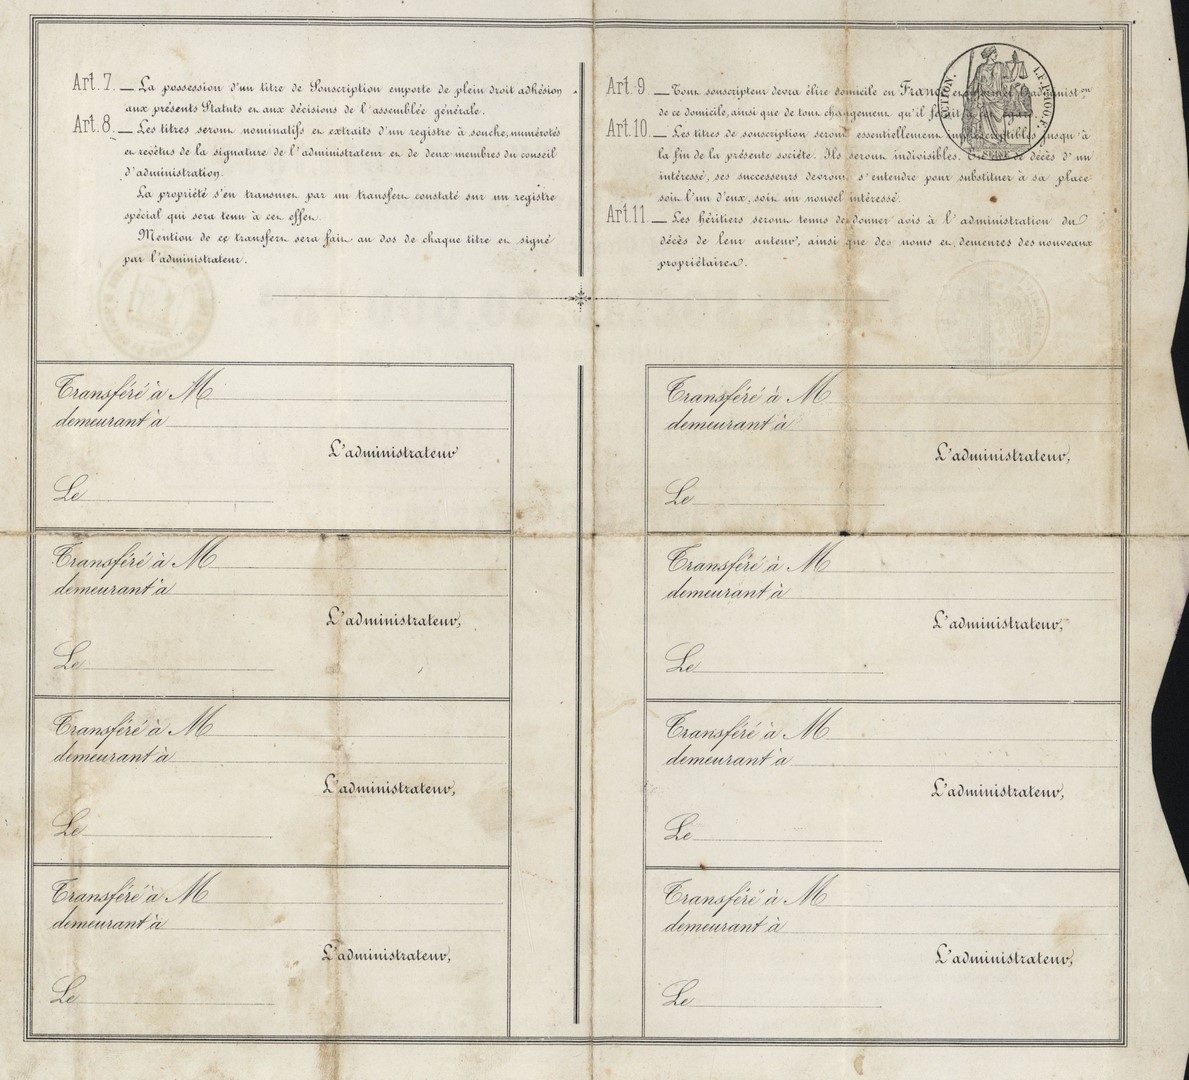 Art. 7. — La possession d'un titre de Souscription emporte de plein droit adhésion
aux présents Statuts et aux décisions de l'assemblée générale.
Art. 8. — Les titres seront nominatifs et extraits d'un registre à souche, numérotés
et revêtus de la signature de l'administrateur et de deux membres du conseil
d'administration.
La propriété s'en transmet par un transfert constaté sur un registre
spécial qui sera tenu à cet effet.
Mention de ce transfert sera fait au dos de chaque titre et signé
par l'administrateur.
Art. 9 — Tout souscripteur devra élire domicile en France et
de ce domicile, ainsi que de tout changement qu'il
Art. 10. — Les titres de souscription seront essentiellement jusqu'à
la fin de la présente société. Ils seront indivisibles. En cas de décès d'un
intéressé, ses successeurs devront s'entendre pour substituer à sa place
soit l'un d'eux, soit un nouvel intéressé.
Art. 11. — Les héritiers seront tenus de donner avis à l'administration du
décès de leur auteur, ainsi que des noms et demeures des nouveaux
propriétaires.
ACTION.
Transféré à M
demeurant à
L'administrateur
Le
Transféré à M
demeurant à
L'administrateur,
Le
Transféré à M
demeurant à
L'administrateur,
Le
Transféré à M
demeurant à
L'administrateur,
Le
Transféré à M
demeurant à
L'administrateur,
Le
Transféré à M
demeurant à
L'administrateur,
Le
Transféré à M
demeurant à
L'administrateur,
Le
Transféré à M
demeurant à
L'administrateur,
Le